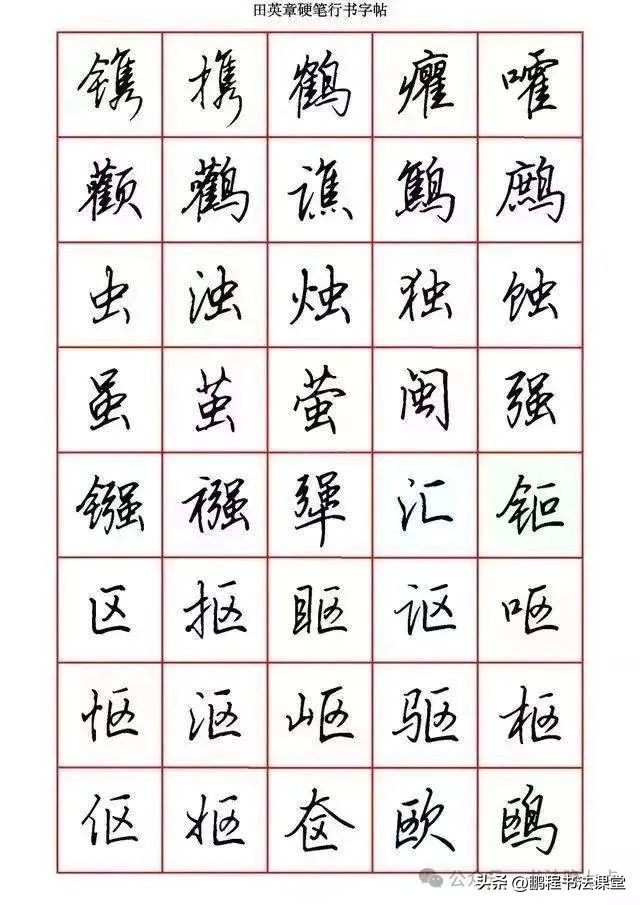 田英章硬笔行书字帖
镌 携 鹤 癯 嚯
颧 鹳 谯 鹪 鹧
虫 浊 烛 独 蚀
虽 茧 萤 闽 强
镪 襁 犟 汇 钷
区 抠 眍 讴 呕
怄 沤 岖 驱 枢
伛 妪 奁 欧 鸥
头条 @鹏程书法课堂